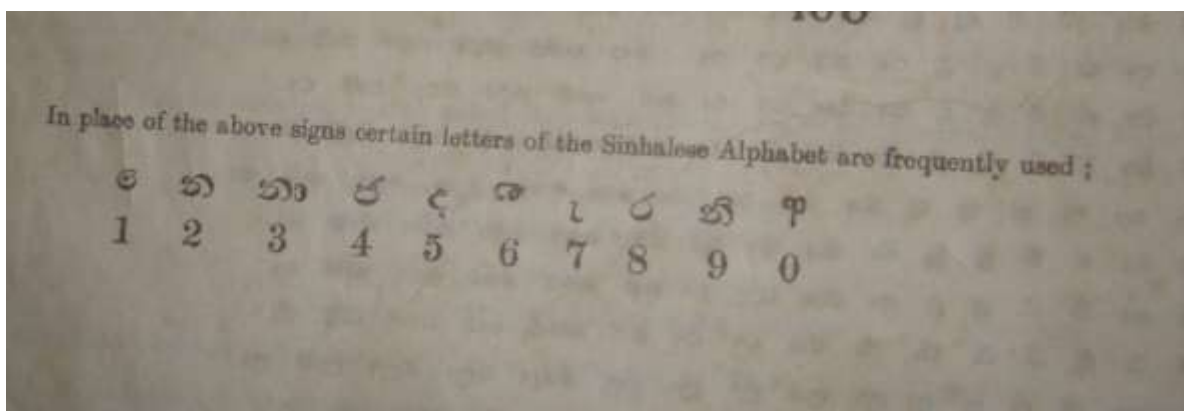 In place of the above signs certain letters of the Sinhalese Alphabet are frequently used ;
ෙ න නා ජ ද ෬ ැ ර නි ආ
1 2 3 4 5 6 7 8 9 0